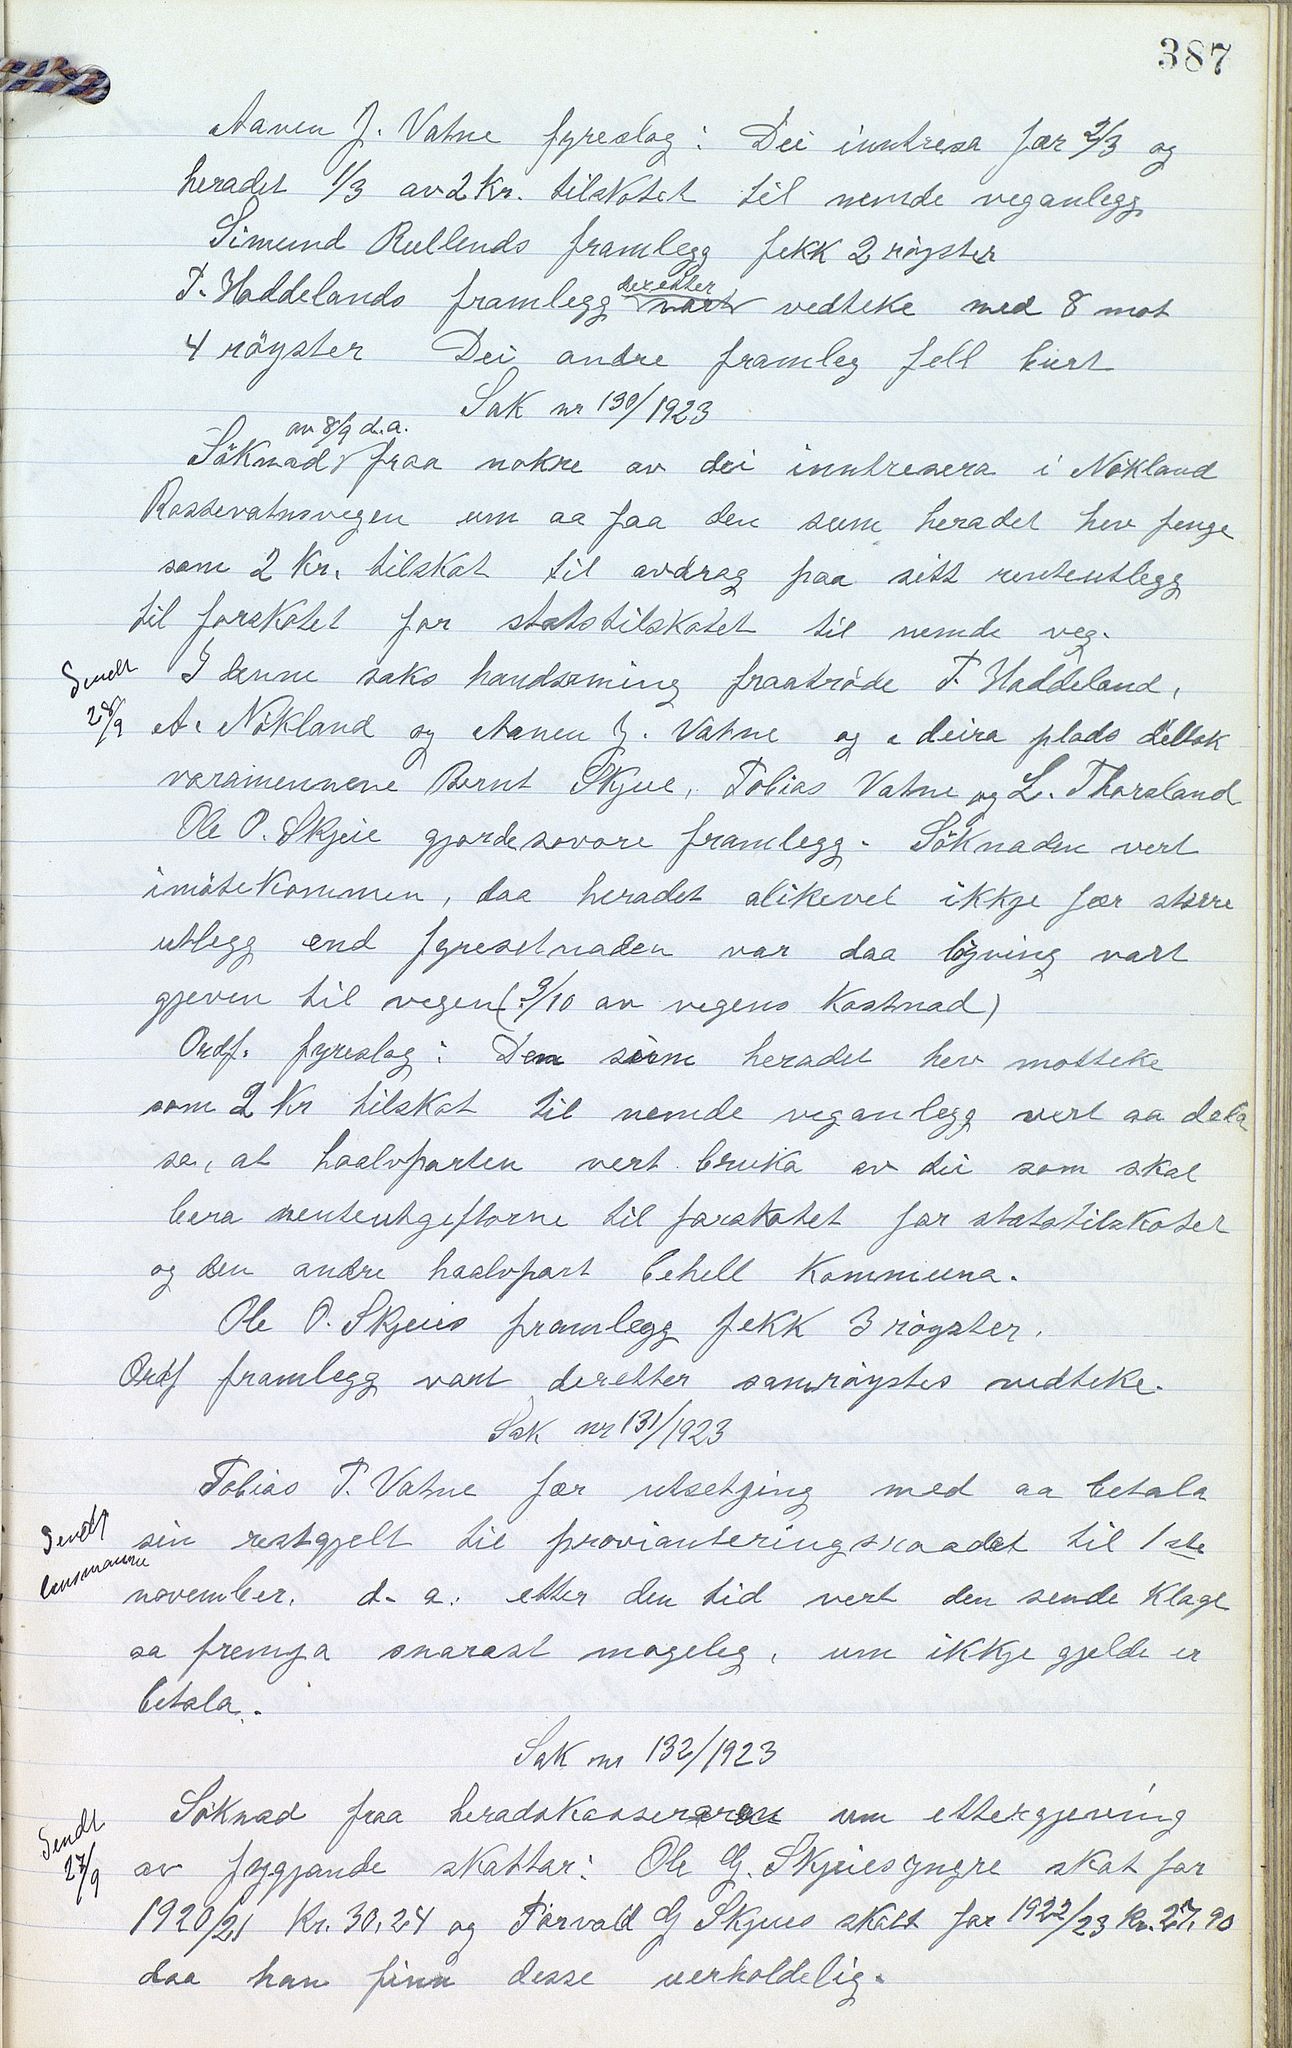 387
Aanen J. Vatne fyreslag: Dei inntresa fær 2/3 og
heradet 1/3 av 2 kr. tilskotet til nemde veganlegg
Simund Rullends framlegg fekk 2 röyster
T. Haddelands framlegg deretter vart vedteke med 8 mot
4 röyster Dei andre framleg fell burt
Sak nr 130/1923
av 8/9 d.a.
Söknad fraa nokre av dei inntresera i Nökland
Rossevatnsvegen um aa faa den sum heradet hev fenge
som 2 Kr. tilskot til avdrag paa sitt renteutlegg
til forskotet for statstilskotet til nemde veg.
Sendt 28/9
I denne saks handsaming fraatröde T. Haddeland,
A. Nökland og Aanen J. Vatne og i deira plads deltok
varamennene Bernt Skjeie, Tobias Vatne og L. Thorsland
Ole O. Skjeie gjorde sovore framlegg. Söknaden vert
imötekommen, daa heradet alikevel ikkje fær större
utlegg end fyresetnaden var daa löyving vart
gjeven til vegen (9/10 av vegens kostnad)
Ordf. fyreslag: Den sum heradet hev motteke
som 2 Kr tilskot til nemde veganlegg vert aa dela
so, at haalvparten vert bruka av dei som skal
bera renteutgiftorne til forskotet for statstilskotet
og den andre haalvpart behell kommuna.
Ole O. Skjeies framlegg fekk 3 röyster.
Ordf framlegg vart deretter samröystes vedteke.
Sak nr 131/1923
Tobias T. Vatne fær utsetjing med aa betala
Sendt lensmannen
sin restgjelt til provianteringsraadet til 1ste
november. d. a. etter den tid vert den sende klage
sa fremja snarast mogeleg, um ikkje gjelde er
betala.
Sak nr 132/1923
Söknad fraa heradskasseraren um ettergjeving
Sendt 27/9
av fygjande skattar: Ole G. Skjeies yngre skat for
1920/21 Kr. 30,24 og Torvald G Skjeies skatt for 1922/23 kr. 27,90
daa han finn desse uerholdelig.